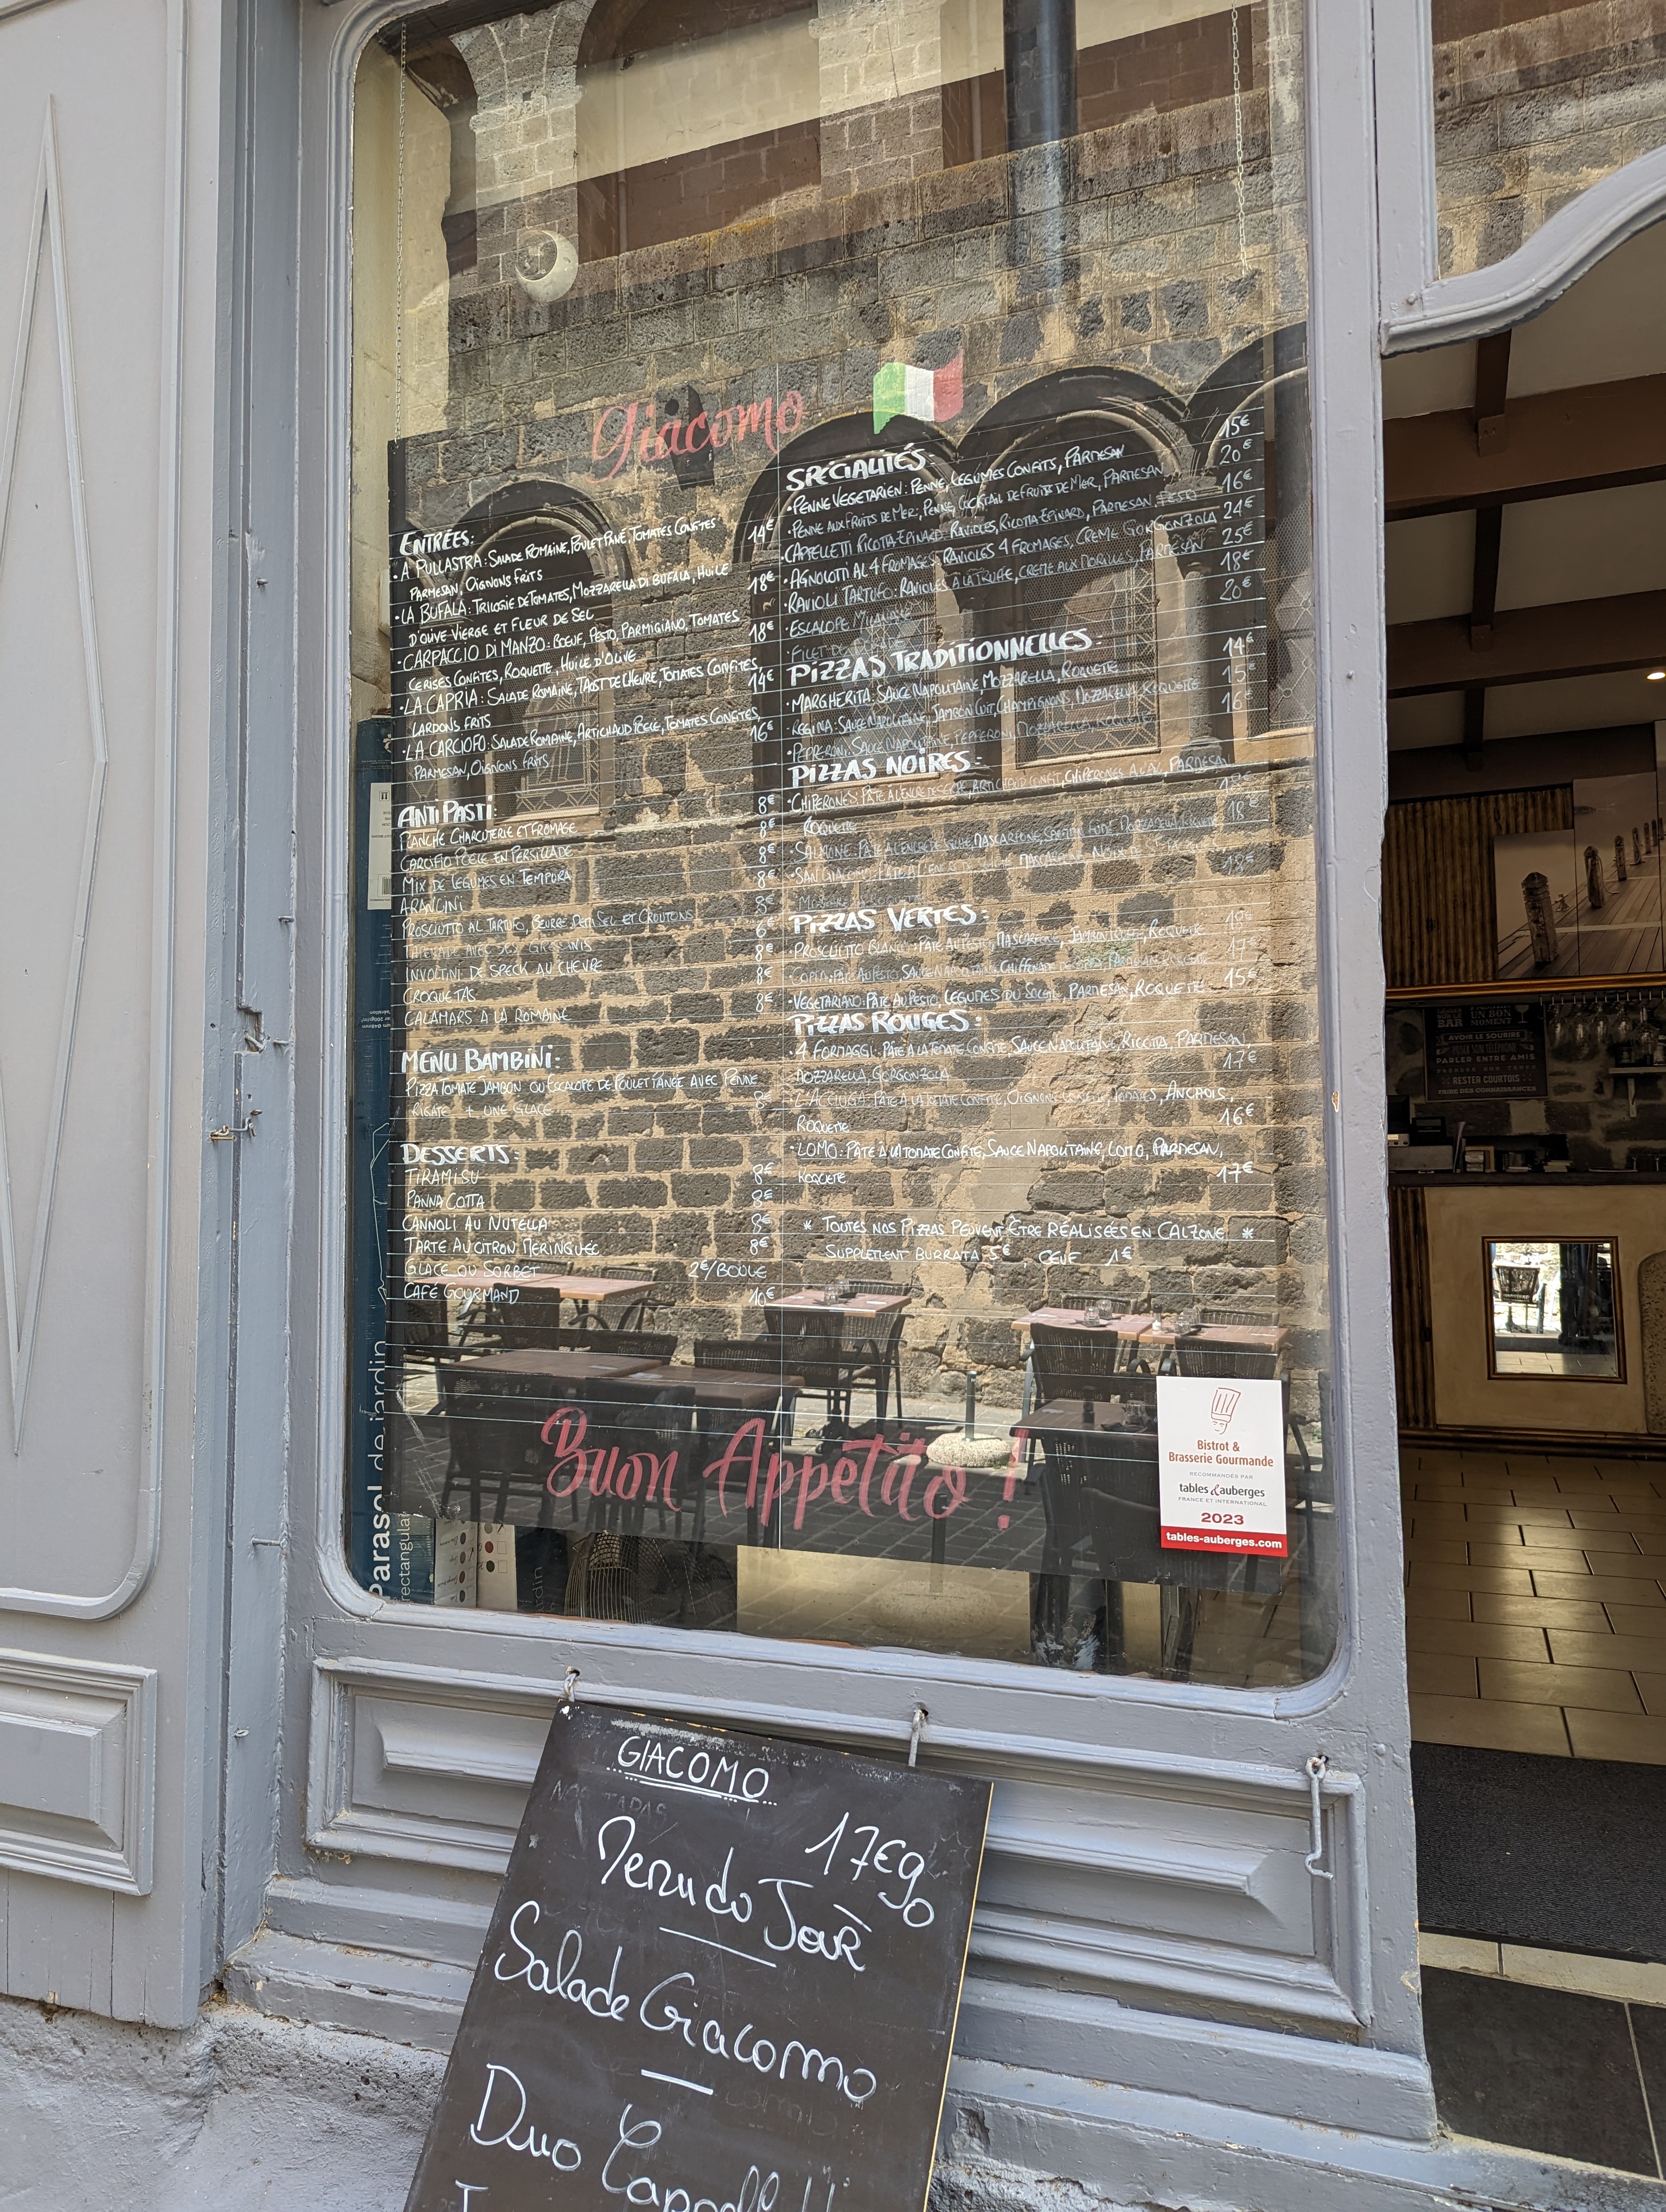 Giacomo
ENTRÉES:
• A PULLASTRA: SALADE ROMAINE, POULET PANÉ, TOMATES CONFITES 14€
PARMESAN, OIGNONS FRITS
• LA BUFALA: TRILOGIE DE TOMATES, MOZZARELLA DI BUFALA, HUILE 18€
D'OLIVE VIERGE ET FLEUR DE SEL
• CARPACCIO DI MANZO: BOEUF, PESTO, PARMIGIANO, TOMATES 18€
CERISES CONFITES, ROQUETTE, HUILE D'OLIVE
• LA CAPRIA: SALADE ROMAINE, TOAST DE CHEVRE, TOMATES CONFITES, 14€
LARDONS FRITS
• LA CARCIOFO: SALADE ROMAINE, ARTICHAUD POELE, TOMATES CONFITES, 16€
PARMESAN, OIGNONS FRITS
ANTI PASTI:
PLANCHE CHARCUTERIE ET FROMAGE 8€
CARCIFIO POELE EN PERSILLADE 8€
MIX DE LEGUMES EN TEMPURA 8€
ARANCINI 8€
PROSCIUTTO AL TARTUFO, BEURRE DEMI SEL ET CROUTONS 8€
AVEC SES GRESSINIS 6€
INVOLTINI DE SPECK AU CHEVRE 8€
CROQUETAS 8€
CALAMARS A LA ROMAINE 8€
MENU BAMBINI:
PIZZA TOMATE JAMBON OU ESCALOPE DE POULET PANEE AVEC PENNE
RIGATE + UNE GLACE 8€
DESSERTS:
TIRAMISU 8€
PANNA COTTA 8€
CANNOLI AU NUTELLA 8€
TARTE AU CITRON MERINGUEE 8€
GLACE OU SORBET 2€/BOULE
CAFÉ GOURMAND 10€
SPÉCIALITÉS:
• PENNE VEGETARIEN: PENNE, LEGUMES CONFITS, PARMESAN 15€
• PENNE AUX FRUITS DE MER: PENNE, COCKTAIL DE FRUITS DE MER, PARMESAN 20€
• CAPPELLETTI RICOTTA EPINARD: RAVIOLES, RICOTTA EPINARD, PARMESAN, PESTO 16€
• AGNOLOTTI AL 4 FROMAGES: RAVIOLES 4 FROMAGES, CREME GORGONZOLA 24€
• RAVIOLI TARTUFO: RAVIOLES A LA TRUFFE, CREME AUX MORILLES, PARMESAN 25€
• ESCALOPE MILANAISE 18€
• FILET DE 20€
PIZZAS TRADITIONNELLES:
• MARGHERITA: SAUCE NAPOLITAINE, MOZZARELLA, ROQUETTE 14€
• REGINA: SAUCE NAPOLITAINE, JAMBON CUIT, CHAMPIGNONS, MOZZARELLA, ROQUETTE 15€
• PEPPERONI: SAUCE NAPOLITAINE, PEPPERONI, MOZZARELLA, ROQUETTE 16€
PIZZAS NOIRES:
• CHIPERONES: PÂTE À L'ENCRE DE SEICHE, ARTICHAUD CONFIT, CHIPERONES A L'AIL, PARMESAN
ROQUETTE 18€
• SALMONE: PÂTE À L'ENCRE DE SEICHE, MASCARPONE, SAUMON FUMÉ, MOZZARELLA, ROQUETTE 18€
• SAN GIACOMO: PÂTE A L'ENCRE DE SEICHE, MASCARPONE, NOIX DE ST JACQUES, 18€
PIZZAS VERTES:
• PROSCIUTTO BLANC: PÂTE AU PESTO, MASCARPONE, JAMBON ROQUETTE 18€
• COPPA: PÂTE AU PESTO, SAUCE NAPOLITAINE, CHIFFONADE DE COPPA, PARMESAN, ROQUETTE 17€
• VEGETARIANO: PÂTE AU PESTO, LEGUMES DU SOLEIL, PARMESAN, ROQUETTE 15€
PIZZAS ROUGES:
• 4 FORMAGGI: PÂTE A LA TOMATE CONFITE, SAUCE NAPOLITAINE, RICOTTA, PARMESAN,
MOZZARELLA, GORGONZOLA 17€
• L'ACCIUGA: PÂTE A LA TOMATE CONFITE, OIGNONS TOMATES, ANCHOIS,
ROQUETTE 16€
• LOMO: PÂTE À LA TOMATE CONFITE, SAUCE NAPOLITAINE, LOMO, PARMESAN,
ROQUETTE 17€
* TOUTES NOS PIZZAS PEUVENT ÊTRE RÉALISÉES EN CALZONE *
SUPPLEMENT BURRATA 5€, OEUF 1€
Buon Appetito !
Bistrot &
Brasserie Gourmande
RECOMMANDÉS PAR
tables & auberges
FRANCE ET INTERNATIONAL
2023
tables-auberges.com
Parasol de jardin
rectangulaire
BAR
UN BON
MOMENT
AVOIR LE SOURIRE
PARLER ENTRE AMIS
RESTER COURTOIS
FAIRE DES CONNAISSANCES
GIACOMO
NOS TAPAS
17€90
Menu do Jour
Salade Giacomo
Duo